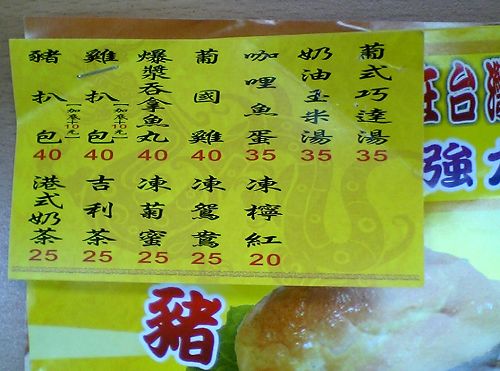 豬扒包 40
[加蛋10元]
雞扒包 40
[加蛋10元]
爆漿吞拿魚丸 40
葡國雞 40
咖哩魚蛋 35
奶油玉米湯 35
葡式巧達湯 35
港式奶茶 25
吉利茶 25
凍菊蜜 25
凍鴛鴦 25
凍檸紅 20
在台灣
強
豬